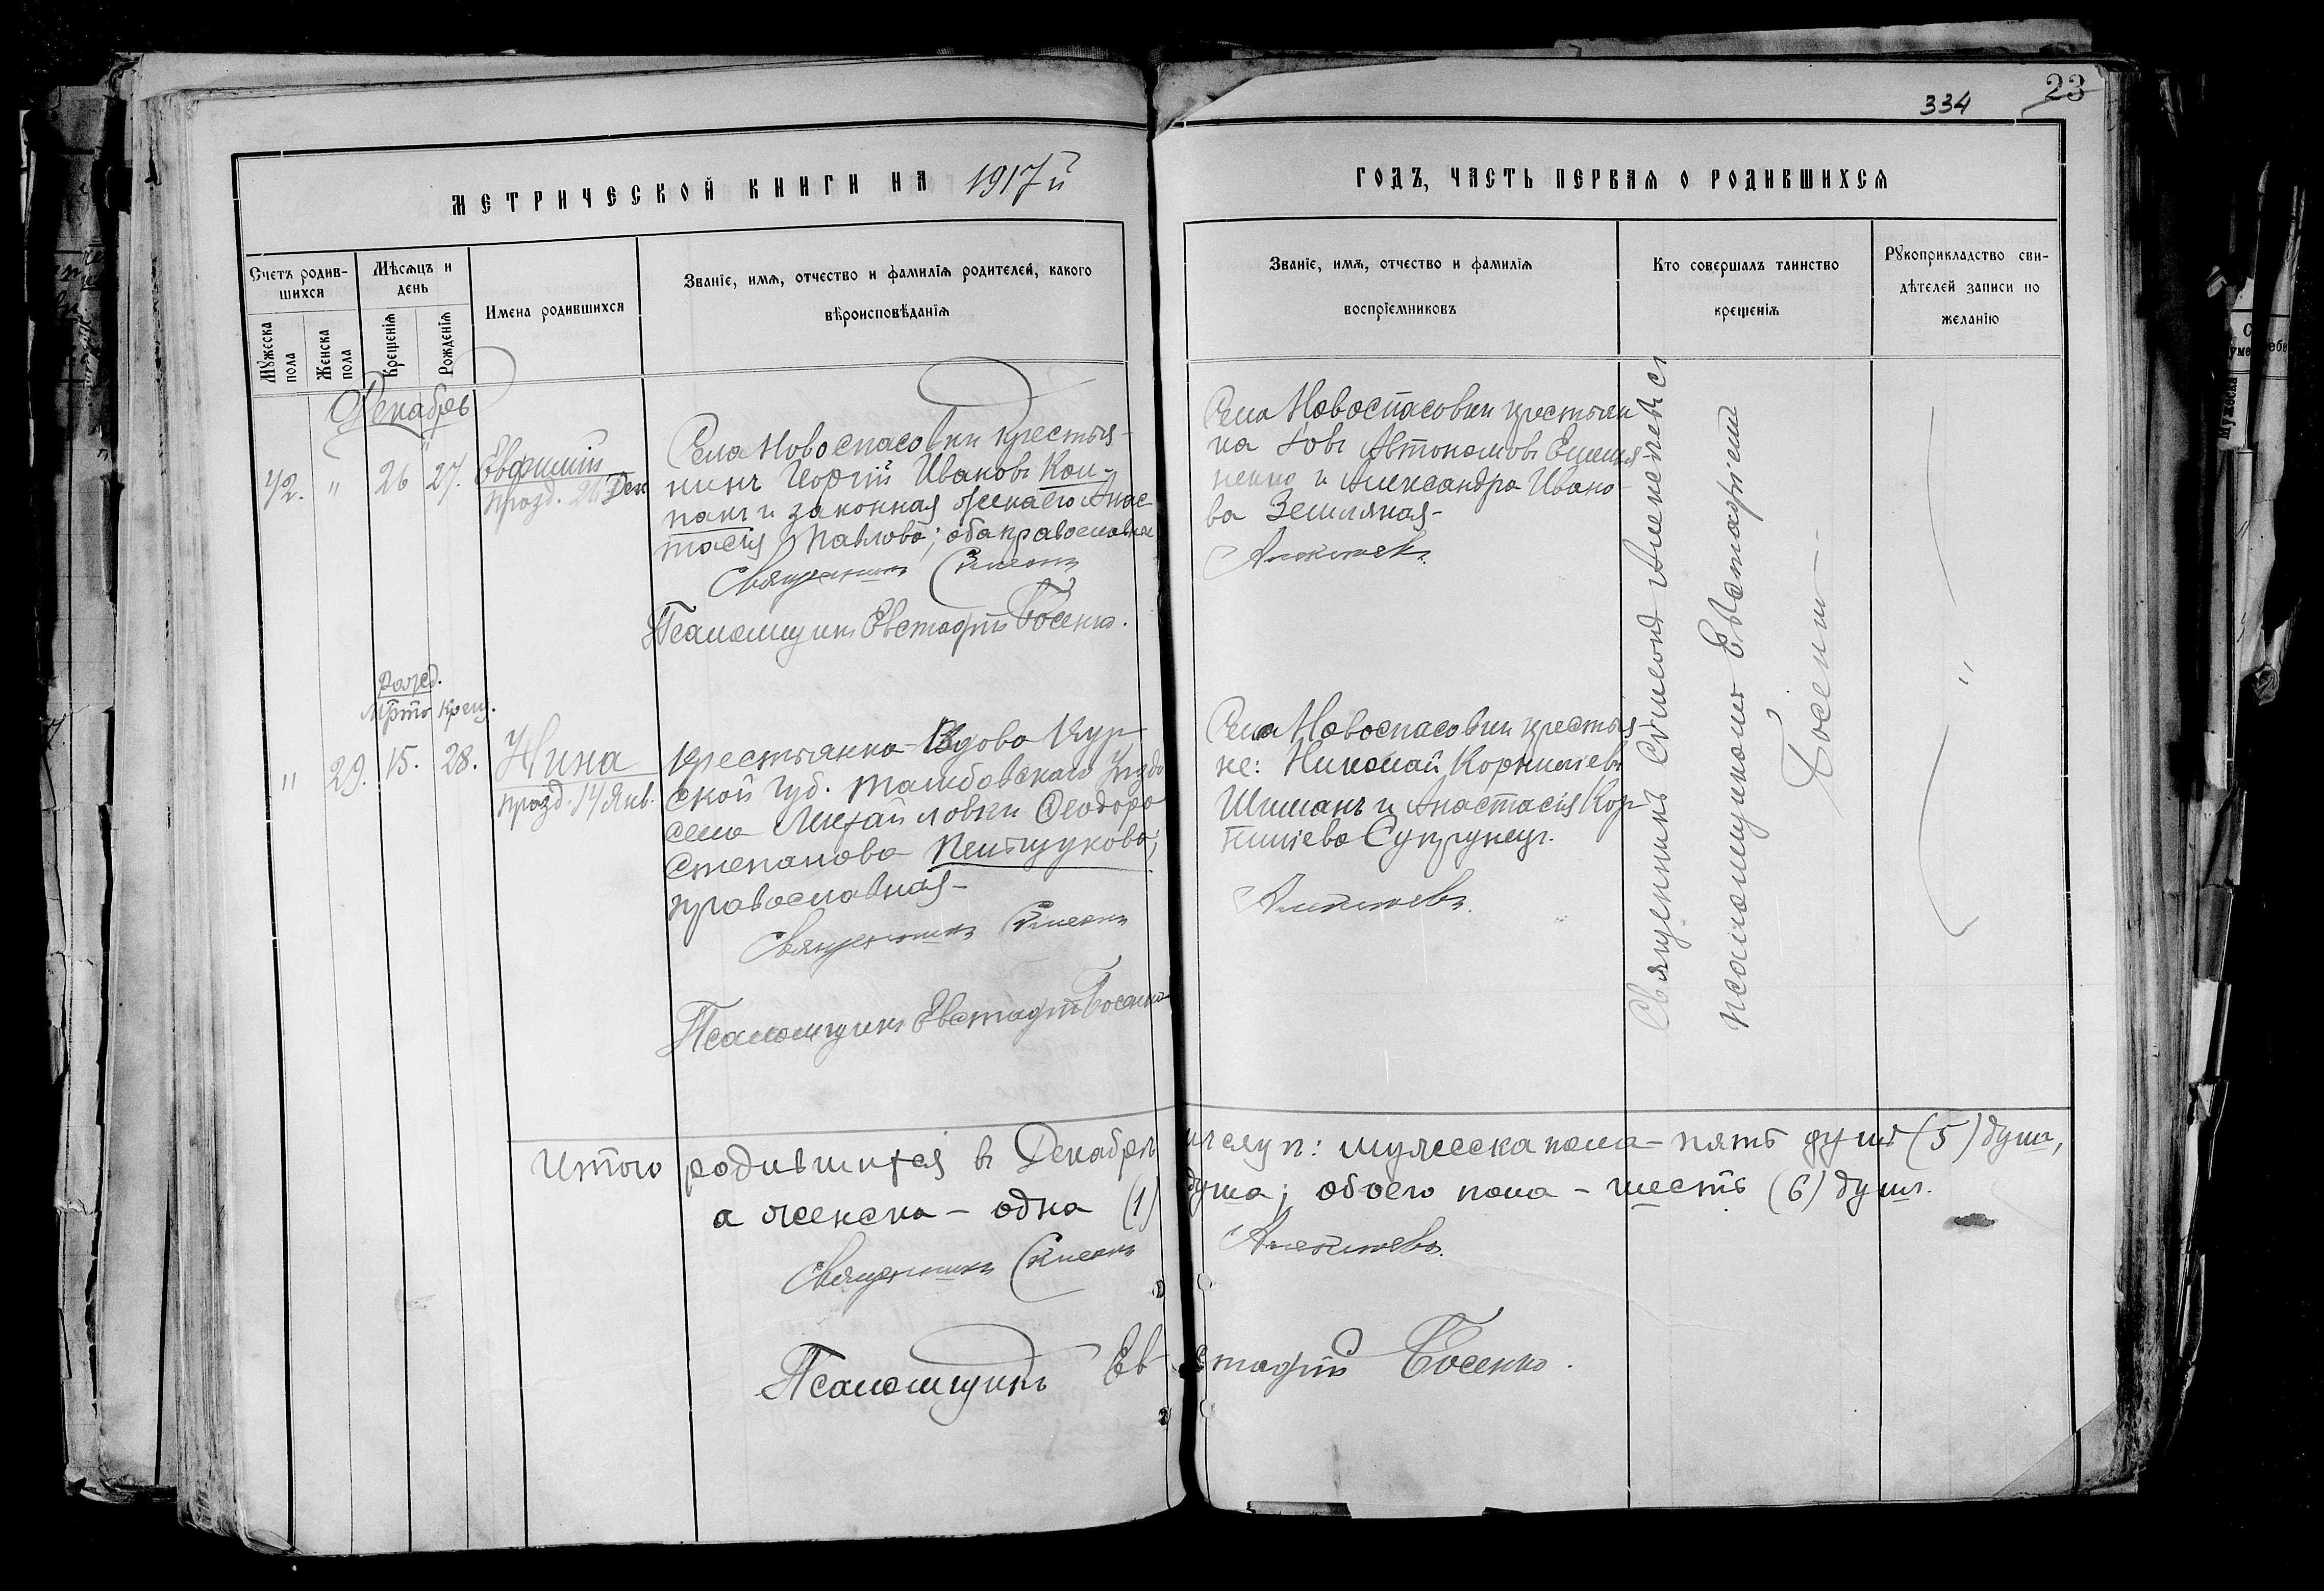 334
23
МЕТРИЧЕСКОЙ КНИГИ НА 1917й
ГОДЪ, ЧАСТЬ ПЕРВАЯ О РОДИВШИХСЯ
Счетъ родив-
шихся
Мужеска пола
Женска пола
Мѣсяцъ и
день
Крещенія
Рожденія
Имена родившихся
Званіе, имя, отчество и фамилія родителей, какого
вѣроисповѣданія
Званіе, имя, отчество и фамилія
воспріемниковъ
Кто совершалъ таинство
крещенія
Рукоприкладство сви-
дѣтелей записи по
желанію
Декабрь
42.
"
26
27.
Евфимій
празд. 26 Дек
Села Новоспасовки крестья-
нинъ Георгій Ивановъ
и законная жена его Анас-
тасія Павлова; оба православные
Священникъ Симеонъ
Псаломщикъ Евстафій Босенко.
Села Новоспасовки крестьян
на Іовъ Автономовъ
и Александра Ивано-
ва Земляная-
Алексѣевъ.
Священникъ Симеонъ Алексѣевъ съ
псаломщикомъ Евстафіемъ
Босенко
рожд.
Марта
крещ.
"
29.
15.
28.
Нина
празд. 14 Янв.
Крестьянка-Вдова Кур-
ской губ. Тамбовскаго уѣзда
села Михайловки Феодора
Степанова
православная-
Священникъ Симеонъ
Псаломщикъ Евстафій Босенко
Села Новоспасовки крестья-
не: Николай Корниліевъ
Шиманъ и Анастасія Кор-
ниліева Супрунецъ.
Алексѣевъ.
Итого родившихся въ Декабрѣ мѣсяцѣ: мужеска пола - пять душъ (5) душъ,
а женска - одна (1) душа; обоего пола - шесть (6) душъ.
Священникъ Симеонъ Алексѣевъ.
Псаломщикъ Евстафій Босенко.